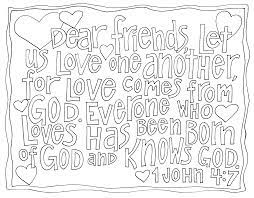 Dear friends, Let
us Love one another,
for Love comes from
GOD. Everyone who
Loves Has Been Born
of GOD and Knows GOD.
1 John 4:7